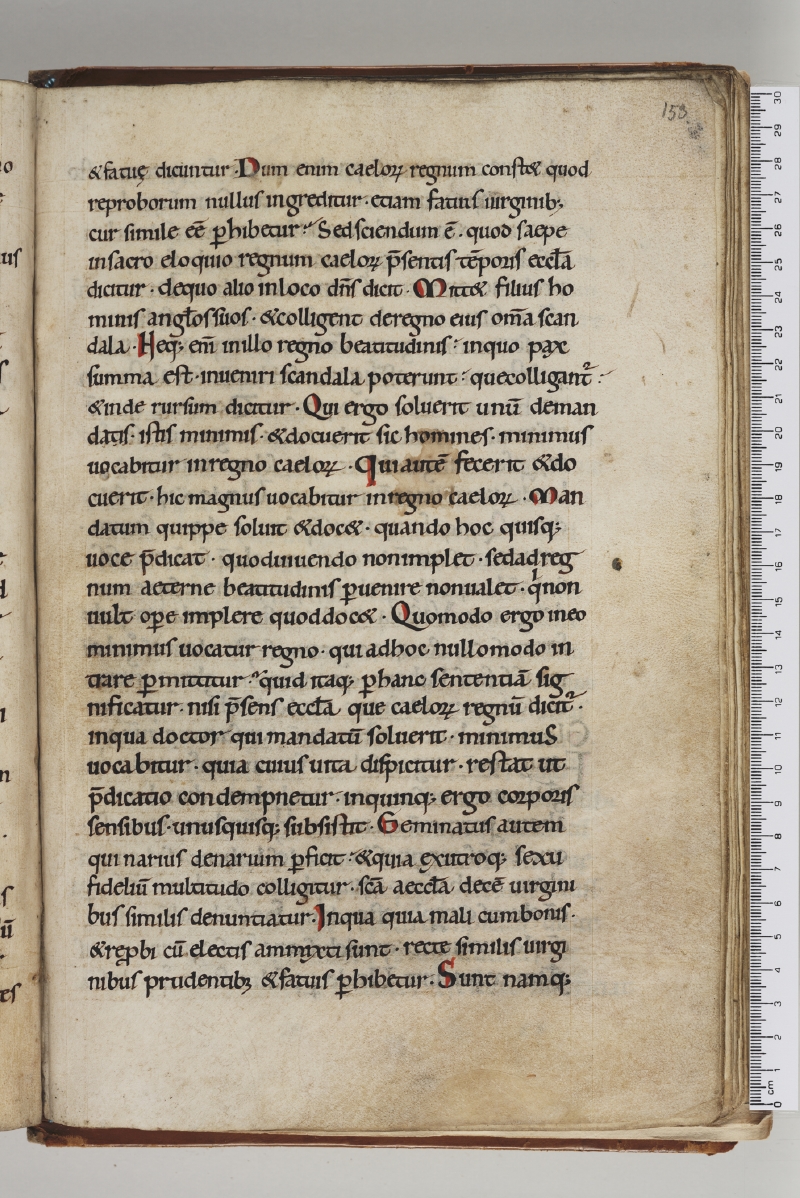 153
&fatuę dicuntur · Dum enim caeloꝝ regnum const& quod
reproborum nullus ingreditur · etiam fatuis uirginib;
cur simile eē ꝑhibetur? Sed sciendum ē · quod saepe
insacro eloquio regnum caeloꝝ p̄sentis tēporis eccl̄a
dicitur · dequo alio inloco dn̄s dicit · Mitt& filius ho
minis angl̄os suos · &colligent deregno eius om̄a scan
dala · Neq; em̄ inillo regno beatitudinis · inquo pax
summa est · inueniri scandala poterunt · quecolligant᷑ ·
&inde rursum dicitur · Qui ergo soluerit unū deman
datis · istis minimis · &docuerit sic homines · minimus
uocabitur inregno caeloꝝ · Qui autē fecerit &do
cuerit · hic magnus uocabitur inregno caeloꝝ · Man
datum quippe soluit &doc& · quando hoc quisq;
uoce p̄dicat · quod uiuendo nonimplet · sedadreg
num aeterne beatitudinis ꝑuenire nonualet · qͥ non
uult oꝑe implere quoddoc& · Quomodo ergo ineo
minimus uocatur regno · qui adhoc nullomodo in
trare ꝑmittitur? quid itaq; ꝑhanc sententiā sig
nificatur · nisi p̄sens eccl̄a que caeloꝝ regnū dicit᷑ ·
inqua doctor qui mandatū soluerit · minimus
uocabitur · quia cuius uita dispicitur · restat ut
p̄dicatio condempnetur · inquinq; ergo corporis
sensibus · unusquisq; subsistit · Geminatus autem
qui narius denarium ꝑficit · &quia exutroq; sexu
fideliū multitudo colligitur · sc̄a aeccl̄a decē uirgini
bus similis denuntiatur · Inqua quia mali cumbonis ·
&rep̱bi cū electis ammixti sunt · recte similis uirgi
nibus prudentib; &fatuis ꝑhibetur · Sunt namq;